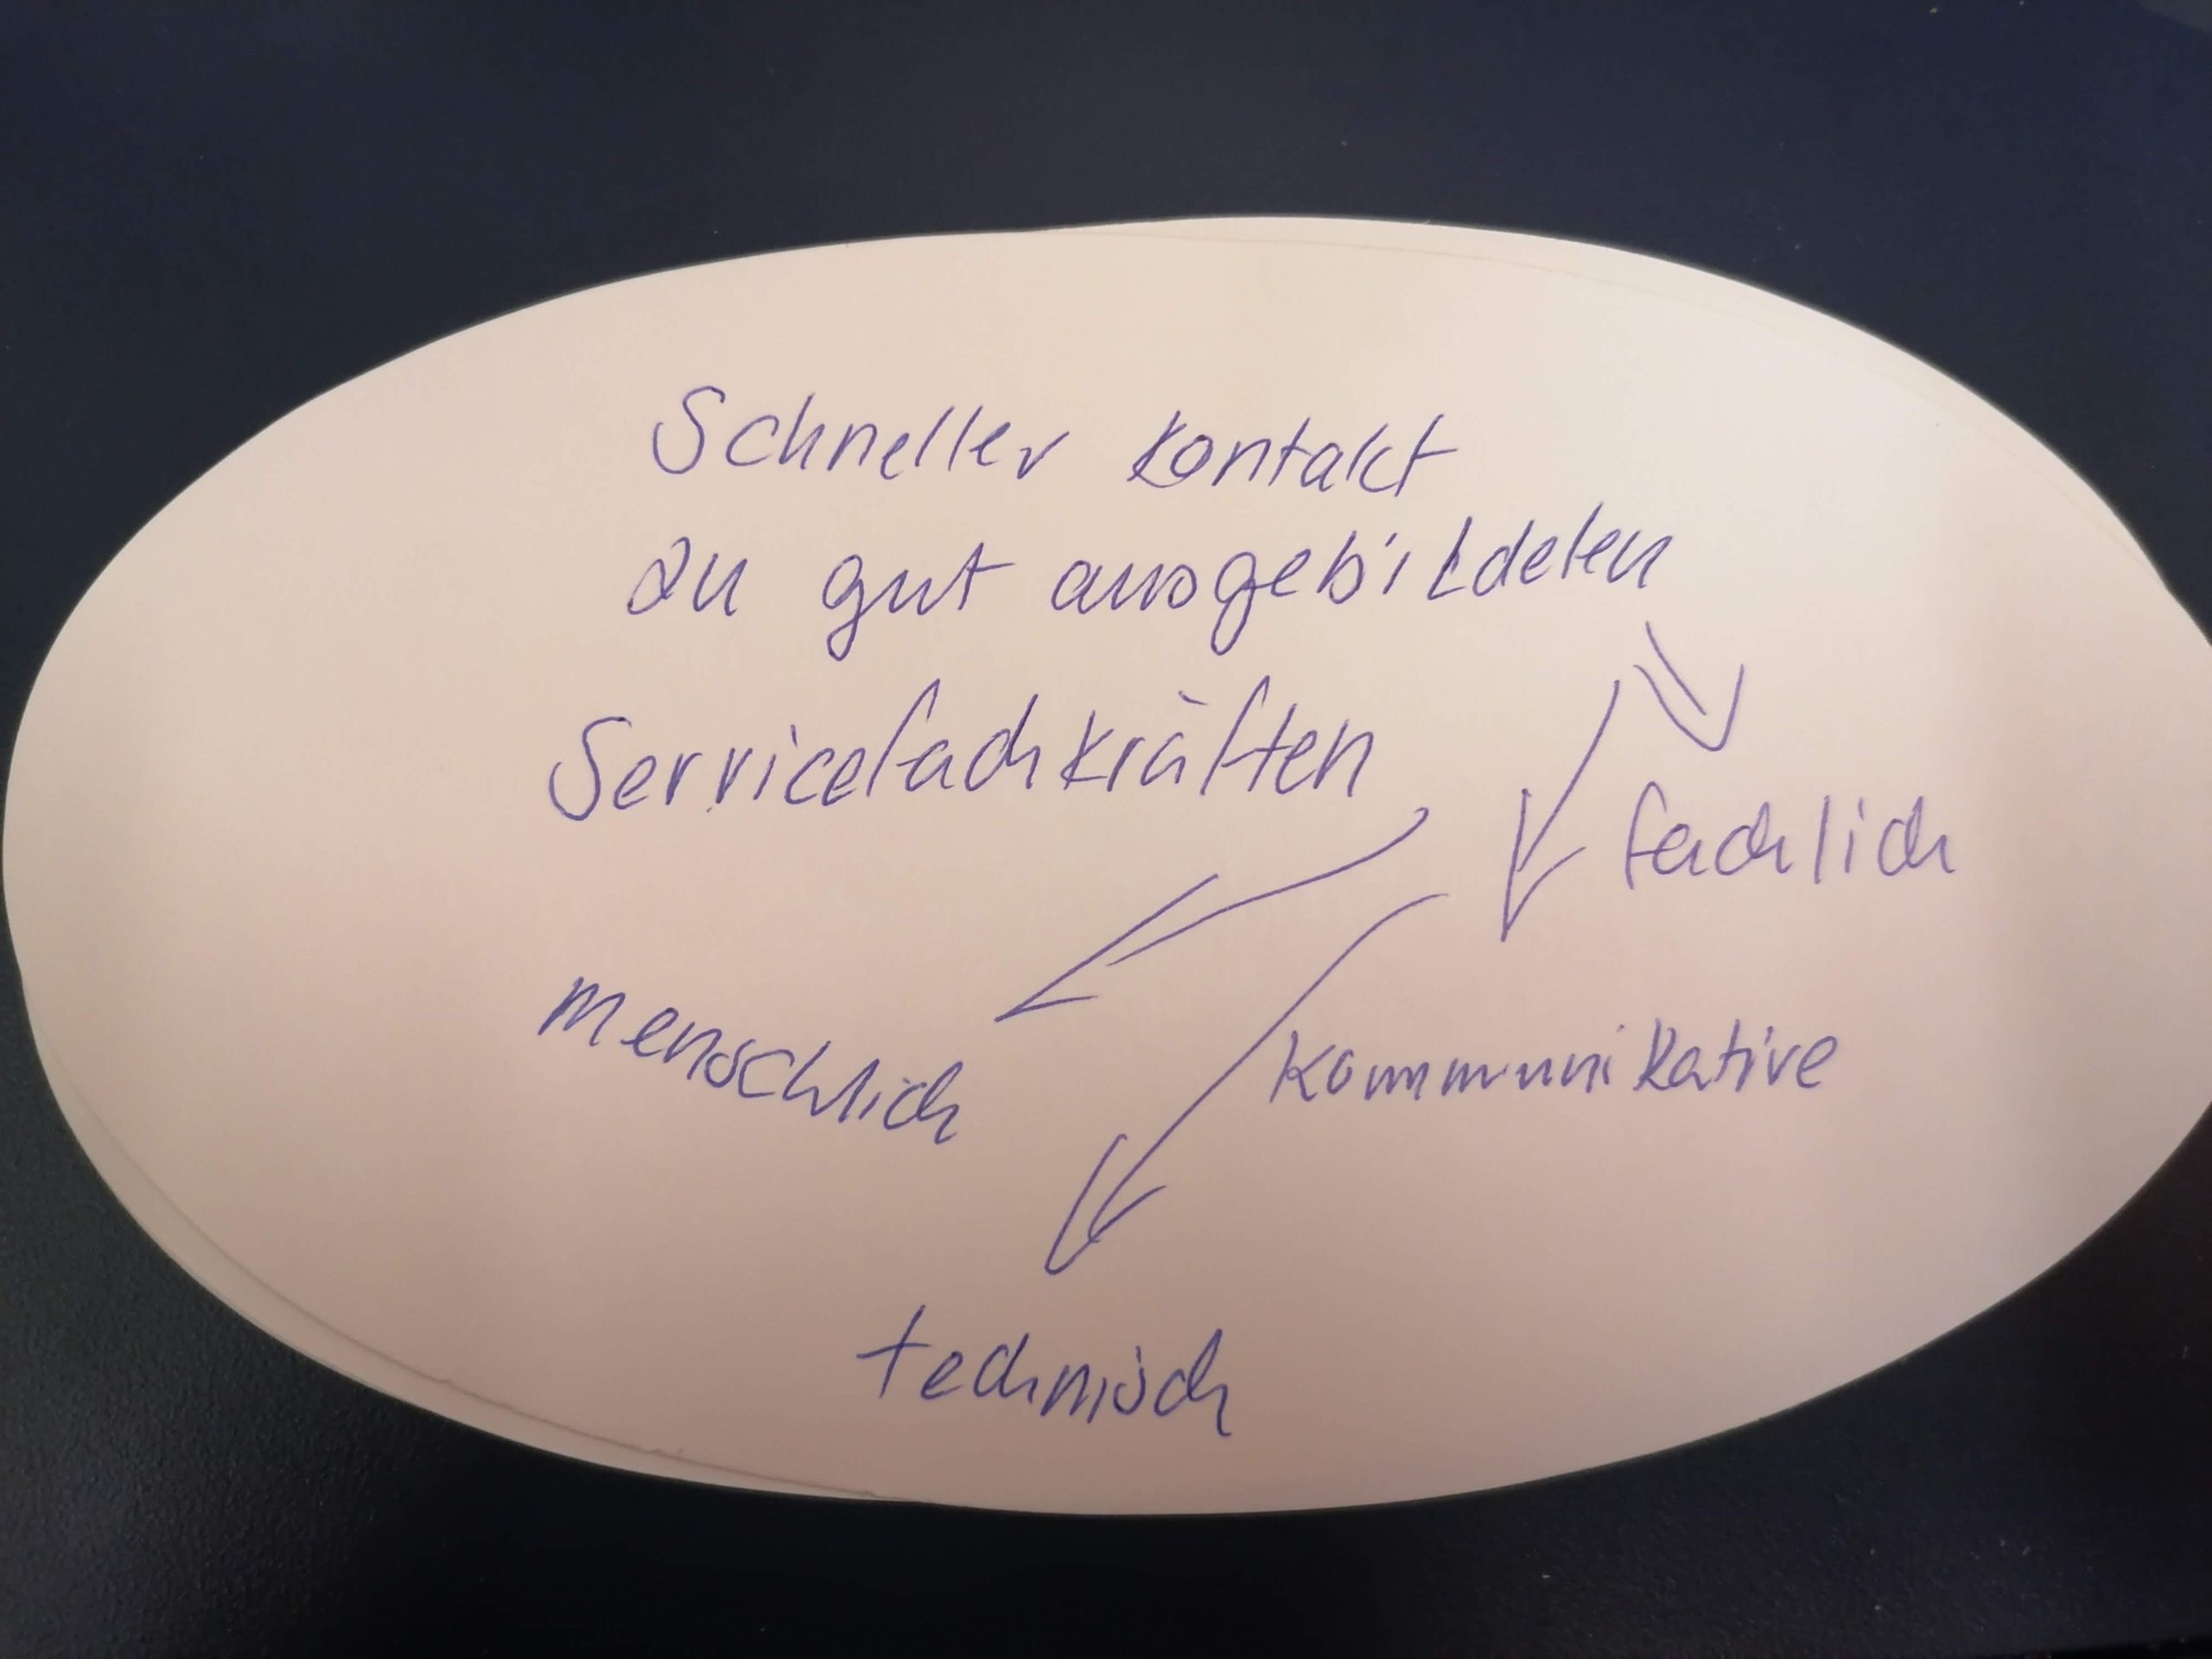 Schneller Kontakt
zu gut ausgebildeten
Servicefachkräften
fachlich
menschlich
kommunikative
technisch